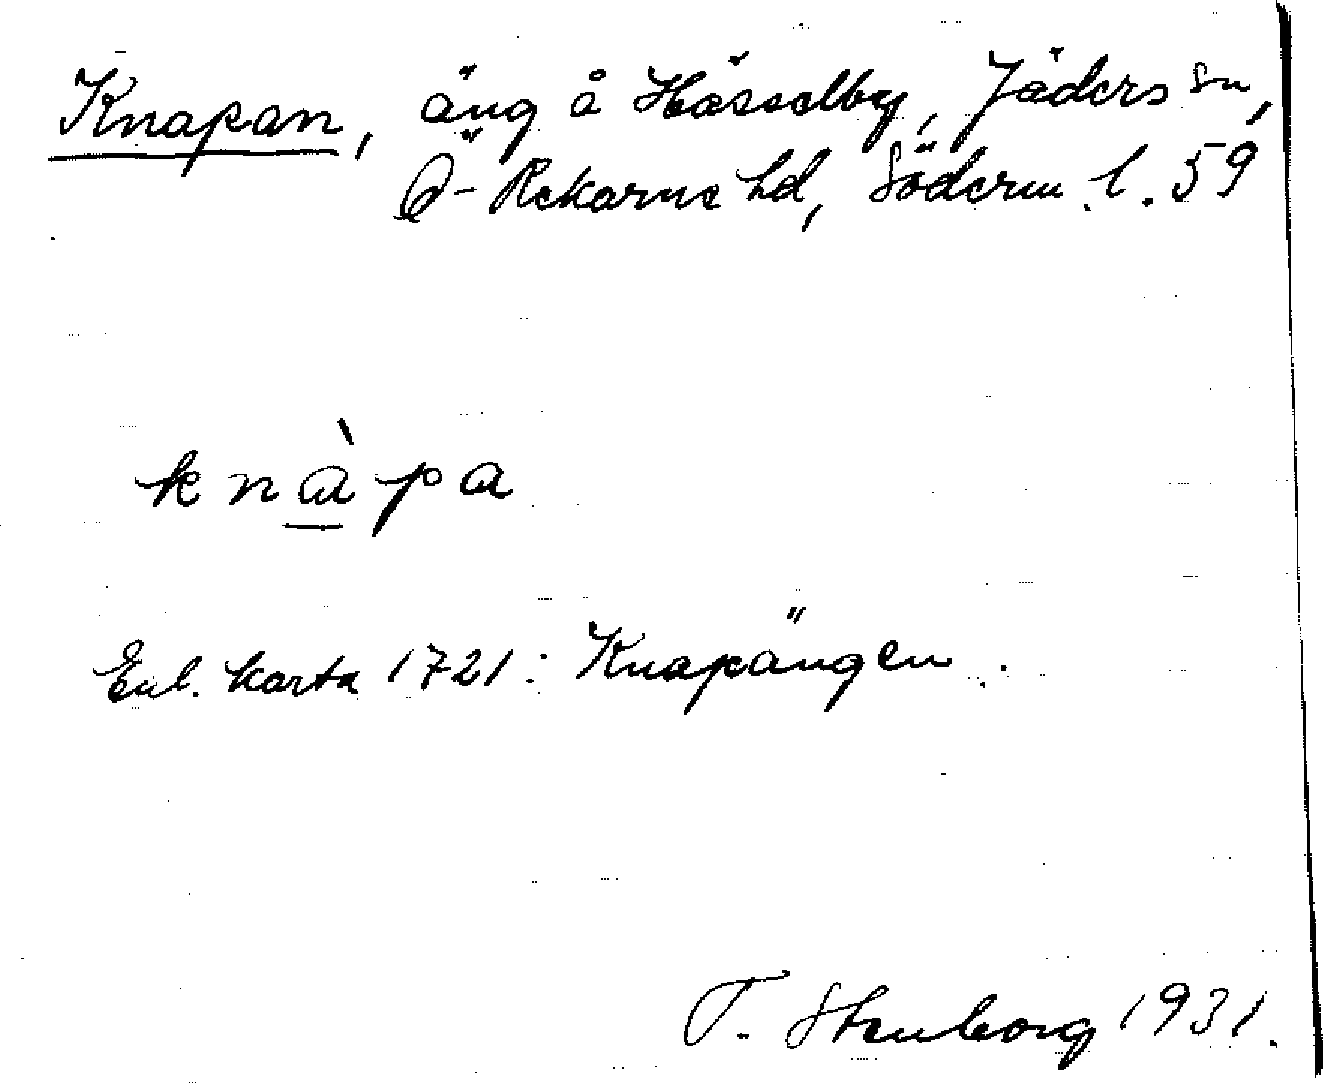 Knapan, äng å Hässelby, Jäders sn,
Ö-Rekarne hd, Söderm. l. 59
knàpa
Enl. karta 1721: Knapängen.
T. Stenborg 1931.